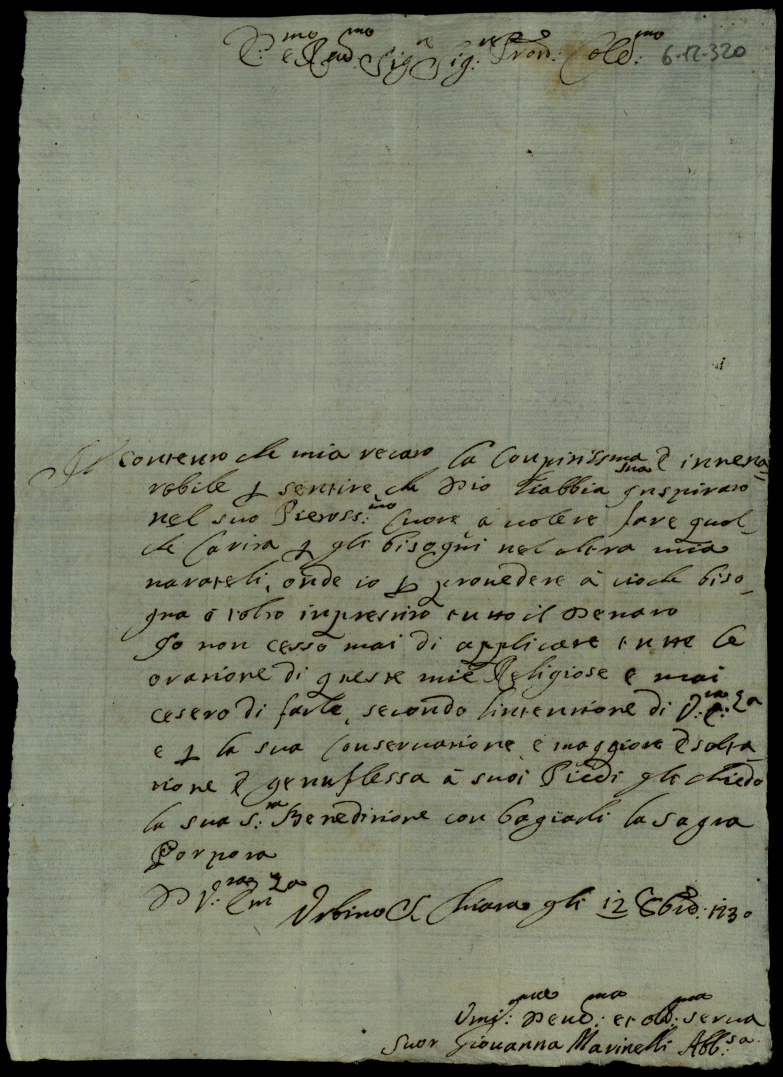 E.mo e Rev.mo Sig.r Sig.r Pron. Col.mo 6-12-320
Il contento che mia recato la Conpitissma sua è innena=
rabile p sentire che Dio l'abbia Inspirato
nel suo Pietoss.mo Cuore à volere fare qual-
che Carità p gli bisogni nel altra mia
narateli, onde io p provedere à cio che biso-
gna ò tolto inprestito tutto il Denaro
Io non cesso mai di applicare tutte le
oratione di queste mie Religiose e mai
cesero di farle, secondo lintentione di V.ra E.za
e p la sua Conservatione e maggiore Esalta-
tione E genuflessa à suoi Piedi gli chiedo
la sua S.ta Beneditione con bagiarli la sagra
Porpora
D V.ra Em.za Urbino S. Chiara gli 12 8bre 1730
Umi.ma Dev.ma et obl.ma serva
Suor Giovanna Marinelli Abb.sa